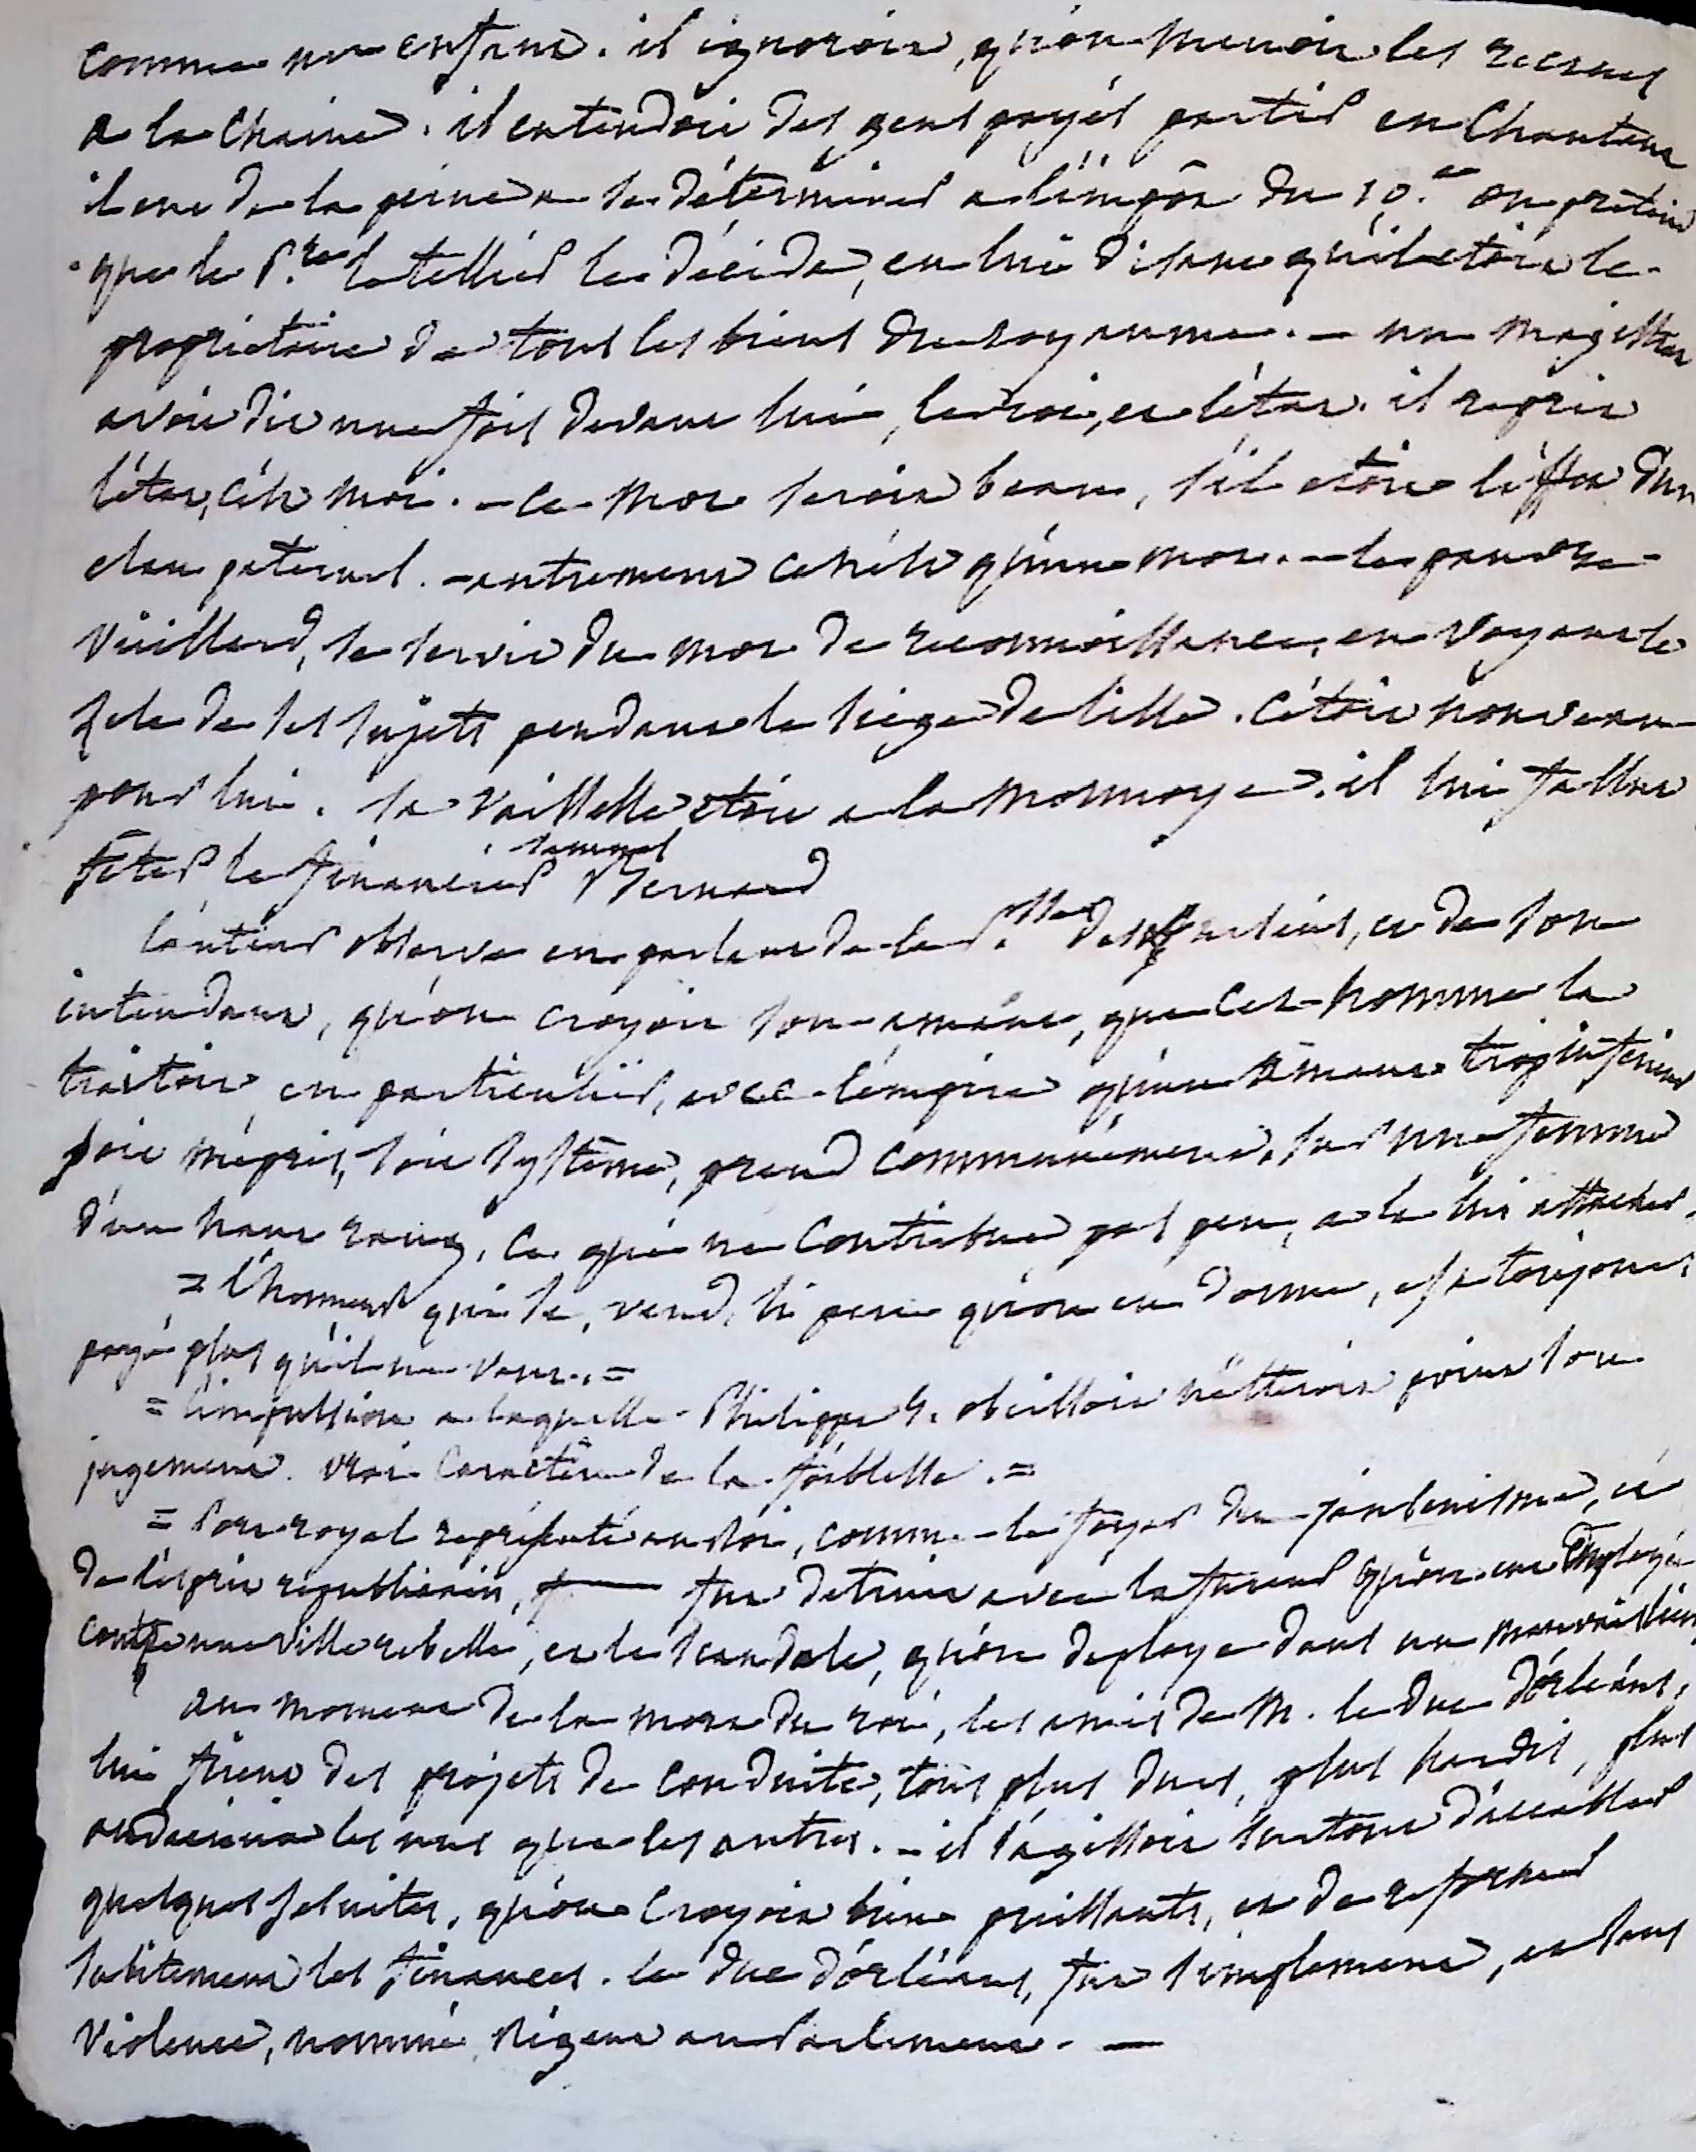 comme un enfant. il ignoroit, qu'on menoit les recrues
a la chaine. il entendoit des gens payés partir en chantant
il eut de la peine a se déterminer a l'impôt du 10.e on prétend
que le P.re le tellier le décida, en lui disant qu'il etoit le
propriétaire de tous les biens du royaume. – un magistrat
avoit dit une fois devant lui, le roi, et l'état. il reprit
l'état, c'est moi. – ce mot seroit beau, s'il etoit l'effet d'un
elan paternel. – autrement ce n'est qu'un mot. – le pauvre
vieillard, se servit du mot de reconnoissance, en voyant le
zele de ses sujets pendant le siège de lille. c'étoit nouveau
pour lui. sa vaisselle etoit a la monnoye. il lui fallut
fêter le financier samuel Bernard
l'auteur observe en parlant de la P.sse des ursins, et de son
intendant, qu'on croyoit son amant, que cet homme la
traitoit en particulier, avec l'empire qu'un amant trop inférieur
soit mépris, soit système, prend communément, sur une femme
d'un haut rang, ce qui ne contribue pas peu, a la lui attacher.
= l'honneur qui se vend, si peu qu'on en donne, est toujours
payé plus qu'il ne vaut. =
= l'impulsion a laquelle Philippe 5. obeissoit n'ôttoit point son
jugement. vrai caractère de la foiblesse. =
= Port royal représenté au Roi, comme le foyer du jansenisme, et
de l'esprit républicain, fut detruit avec la fureur qu'on eut employé
contre une ville rebelle, et le scandale, qu'on deploye dans un mauvais lieu
au moment de la mort du roi, les amis de M. le duc d'orléans,
lui firent des projets de conduite, tous plus durs, plus hardis, plus
audacieux les uns que les autres. – il s'agissoit surtout d'accabler
quelques jesuites, qu'on croyoit bien puissants, et de reformer
subitement les finances. le duc d'orléans, fut simplement, et sans
violence, nommé Régent au Parlement. —